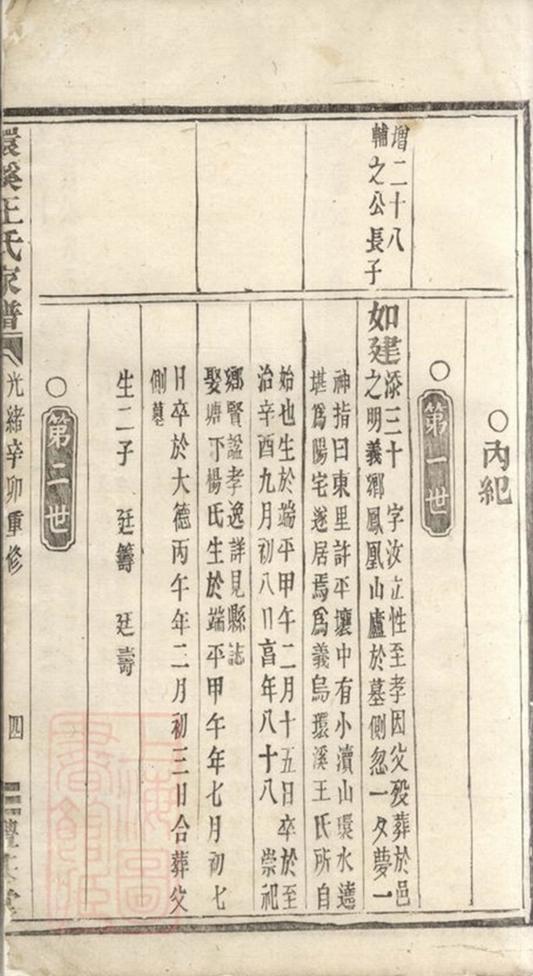 ○內紀
○第一世
增二十八
輔之公長子
如建
添三十　字汝立性至孝因父歿葬於邑
之明義鄉鳳凰山廬於墓側忽一夕夢一
神指曰東里許平壤中有小瀆山環水遶
堪爲陽宅遂居焉爲義烏環溪王氏所自
始也生於端平甲午二月十五日卒於至
治辛酉九月初八日亯年八十八　崇祀
鄉賢諡孝逸詳見縣誌
娶塘下楊氏生於端平甲午年七月初七
日卒於大德丙午年二月初三日合葬父
側墓
生二子　廷籌　廷壽
○第二世
環溪王氏家譜
光緒辛卯重修
四